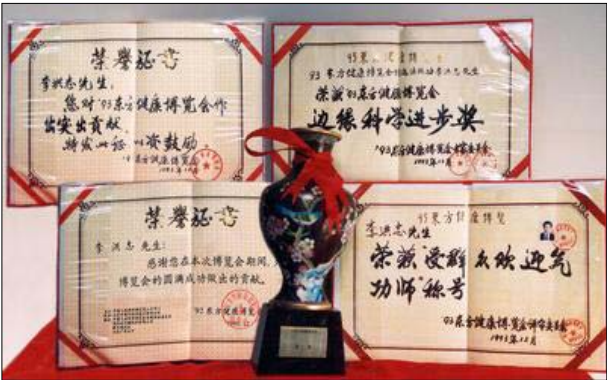 荣誉证书
李洪志先生:
您对'93东方健康博览会作
出突出贡献,
特发此证 以资鼓励。
'93东方健康博览会
1993年12月
93东方健康博览
荣获'93东方健康博览会
边缘科学进步奖
'93东方健康博览会评审委员会
1993年12月
荣誉证书
李洪志先生:
感谢您在本次博览会期间,
博览会的圆满成功做出的贡献。
'92东方健康博览
93东方健康博览
李洪志先生
荣获"受群众欢迎气
功师"称号
'93东方健康博览会评审委员会
1993年12月